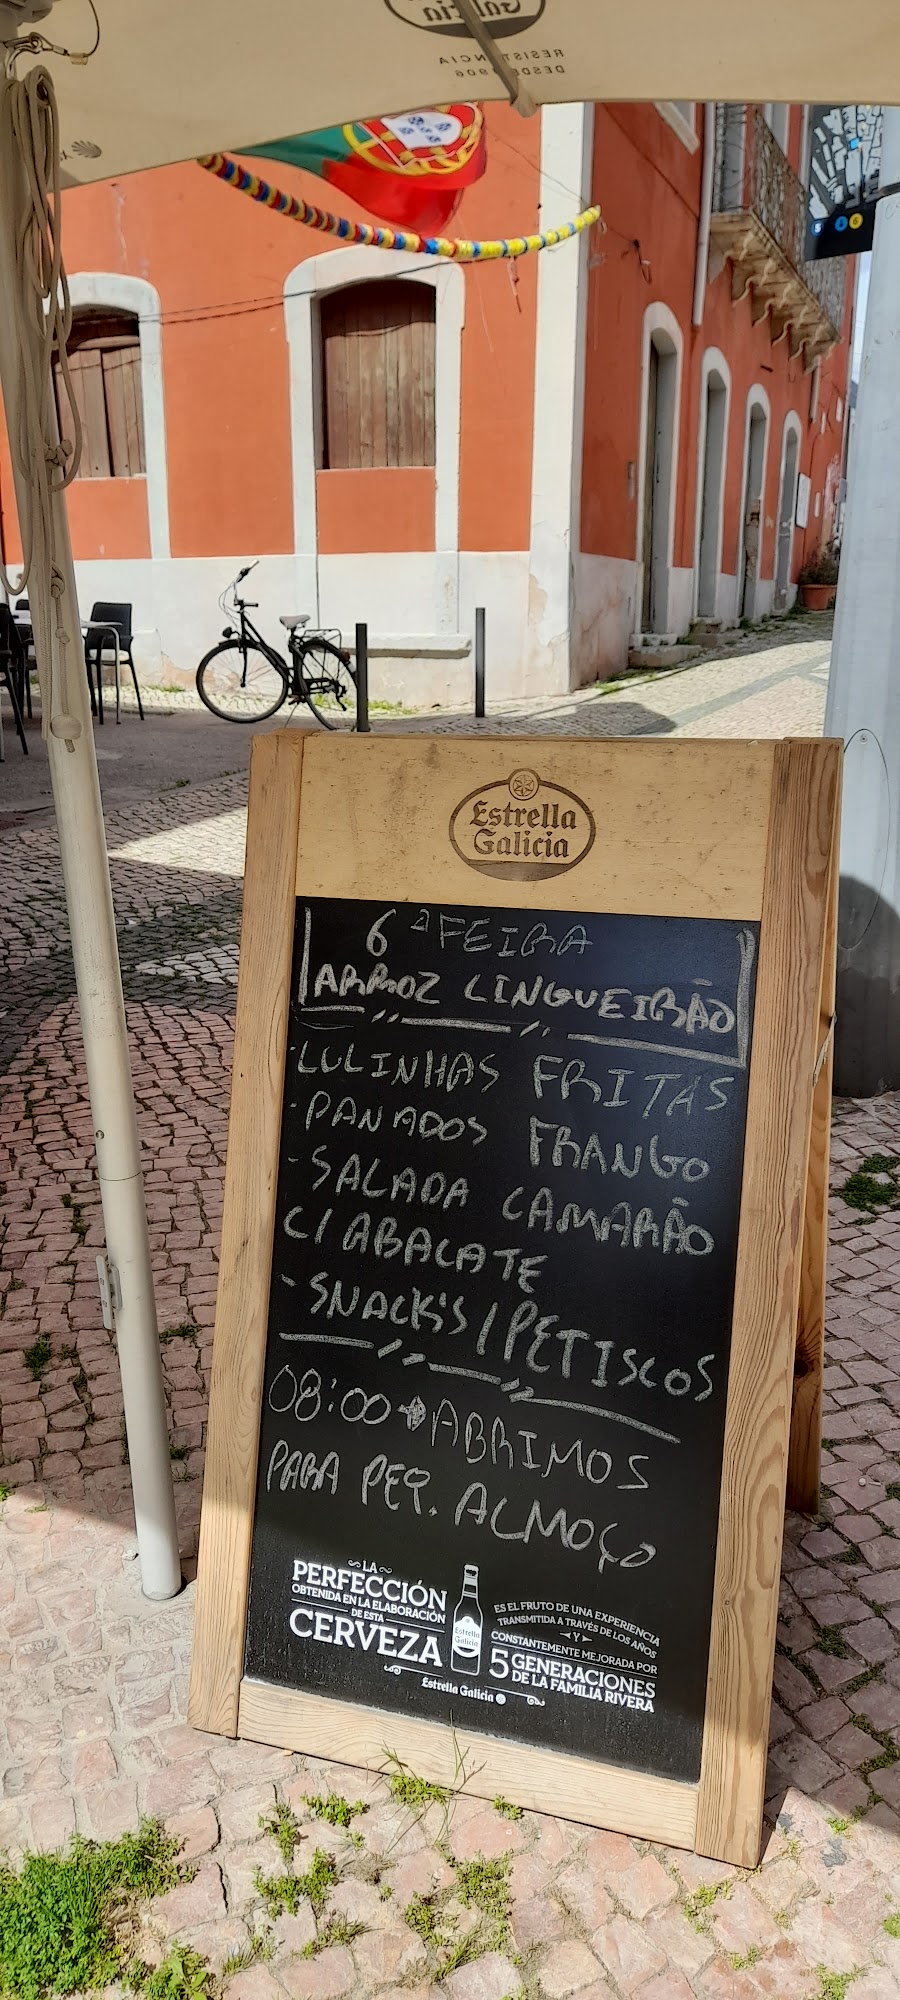 Galicia
RESISTENCIA
DESDE 1906
Estrella
Galicia
6ª FEIRA
ARROZ LINGUEIRÃO
·LULINHAS FRITAS
·PANADOS FRANGO
-SALADA CAMARÃO
C/ ABACATE
-SNACK'S / PETISCOS
08:00 → ABRIMOS
PARA PEQ. ALMOÇO
LA
PERFECCIÓN
OBTENIDA EN LA ELABORACIÓN
DE ESTA
CERVEZA
Estrella
Galicia
ES EL FRUTO DE UNA EXPERIENCIA
TRANSMITIDA A TRAVÉS DE LOS AÑOS
Y
CONSTANTEMENTE MEJORADA POR
5 GENERACIONES
DE LA FAMILIA RIVERA
Estrella Galicia